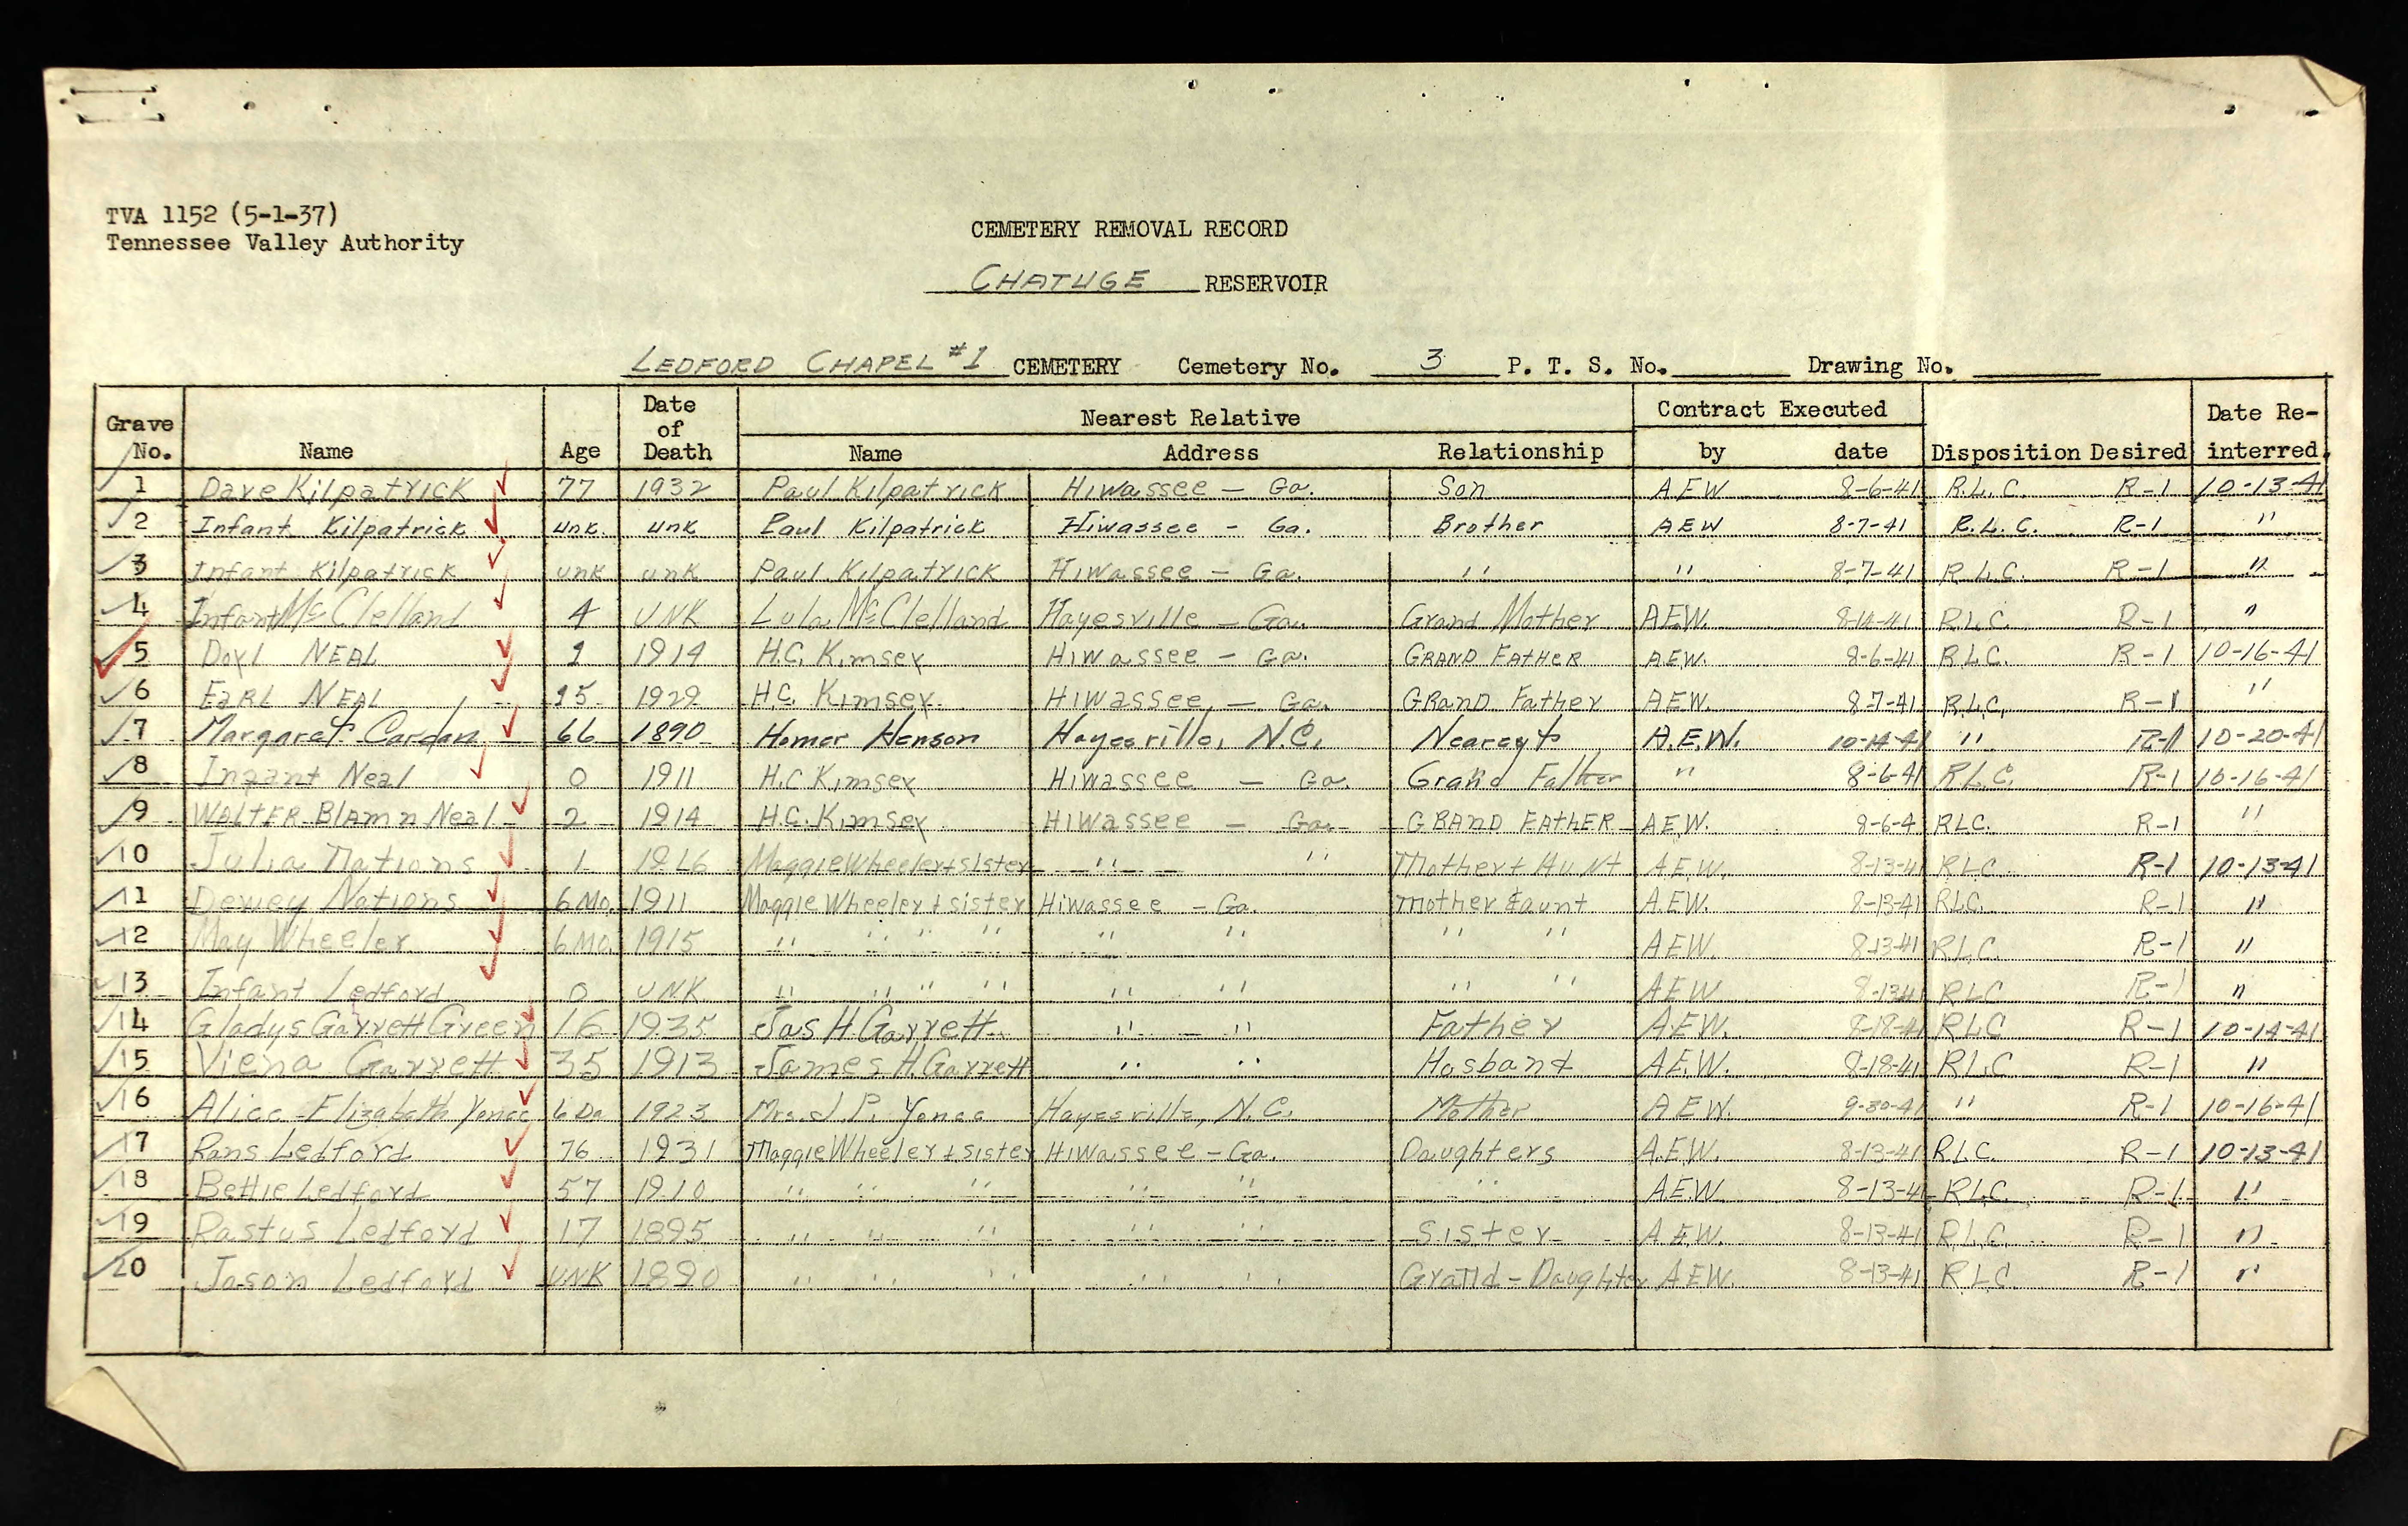 TVA 1152 (5-1-37)
Tennessee Valley Authority
CEMETERY REMOVAL RECORD
CHATUGE RESERVOIR
LEDFORD CHAPEL #1 CEMETERY Cemetery No. 3 P. T. S. No. Drawing No.
Grave No. Name Age Date of Death Nearest Relative Name Address Relationship Contract Executed by date Disposition Desired Date Re-interred
1 Dave Kilpatrick 77 1932 Paul Kilpatrick Hiwassee - Ga. Son AEW 8-6-41 R.L.C. R-1 10-13-41
2 Infant Kilpatrick unk. unk Paul Kilpatrick Hiwassee - Ga. Brother AEW 8-7-41 R.L.C. R-1 "
3 Infant Kilpatrick unk unk Paul Kilpatrick Hiwassee - Ga. " " 8-7-41 R.L.C. R-1 "
4 Infant McClelland 4 UNK Lula McClelland Hayesville - Ga. Grand Mother AEW. 8-14-41 RLC R-1 "
5 Doyl NEAL 1 1914 H.C. Kimsey Hiwassee - Ga. GRAND FATHER AEW. 8-6-41 RLC. R-1 10-16-41
6 EARL NEAL 15 1929 H.C. Kimsey Hiwassee, - Ga. GRand Father AEW. 8-7-41 R.L.C. R-1 "
7 Margaret 66 1890 Homer Henson Hayesville, N.C. Nearest A.E.W. 10-14-41 " R-1 10-20-41
8 Infant Neal 0 1911 H.C Kimsey Hiwassee - Ga. Grand Father " 8-6-41 RLC. R-1 10-16-41
9 WALTER Neal 2 1914 H.C. Kimsey Hiwassee - Ga. GRAND FATHER AEW. 8-6-4 RLC. R-1 "
10 Julia Nations 1 Maggie Wheeler + sister " " Mother + Aunt A.E.W. 8-13-41 RLC R-1 10-13-41
11 Dewey Nations 6 Mo. 1911 Maggie Wheeler + sister Hiwassee - Ga. Mother & aunt A.EW. 8-13-41 RLC. R-1 "
12 May Wheeler 6 Mo. 1915 " " " " " " " " AEW. 8-13-41 RLC. R-1 "
13 Infant Ledford 0 UNK " " " " " " " " AEW 8-13-41 RLC R-1 "
14 Gladys Garrett Green 16 1935 Jas H Garrett " " Father A.EW. 8-18-41 RLC R-1 10-14-41
15 Viena Garrett 35 1913 James H. Garrett " " Husband A.E.W. 8-18-41 RLC R-1 "
16 Alice Elizabeth Yonce 6 Da 1923 Mrs. J.P. Yonce Hayesville, N.C. Mother A.E.W. 9-30-41 " R-1 10-16-41
17 Rans Ledford 76 1931 Maggie Wheeler + sister Hiwassee - Ga. Daughters A.EW. 8-13-41 RLC. R-1 10-13-41
18 Bettie Ledford 57 1910 " " " " " " A.E.W. 8-13-41 RLC. R-1 "
19 Rastus Ledford 17 1895 " " " " " Sister A.EW. 8-13-41 R.L.C. R-1 "
20 Jason Ledford UNK 1890 " " " " " Grand-Daughter AEW. 8-13-41 RLC R-1 "